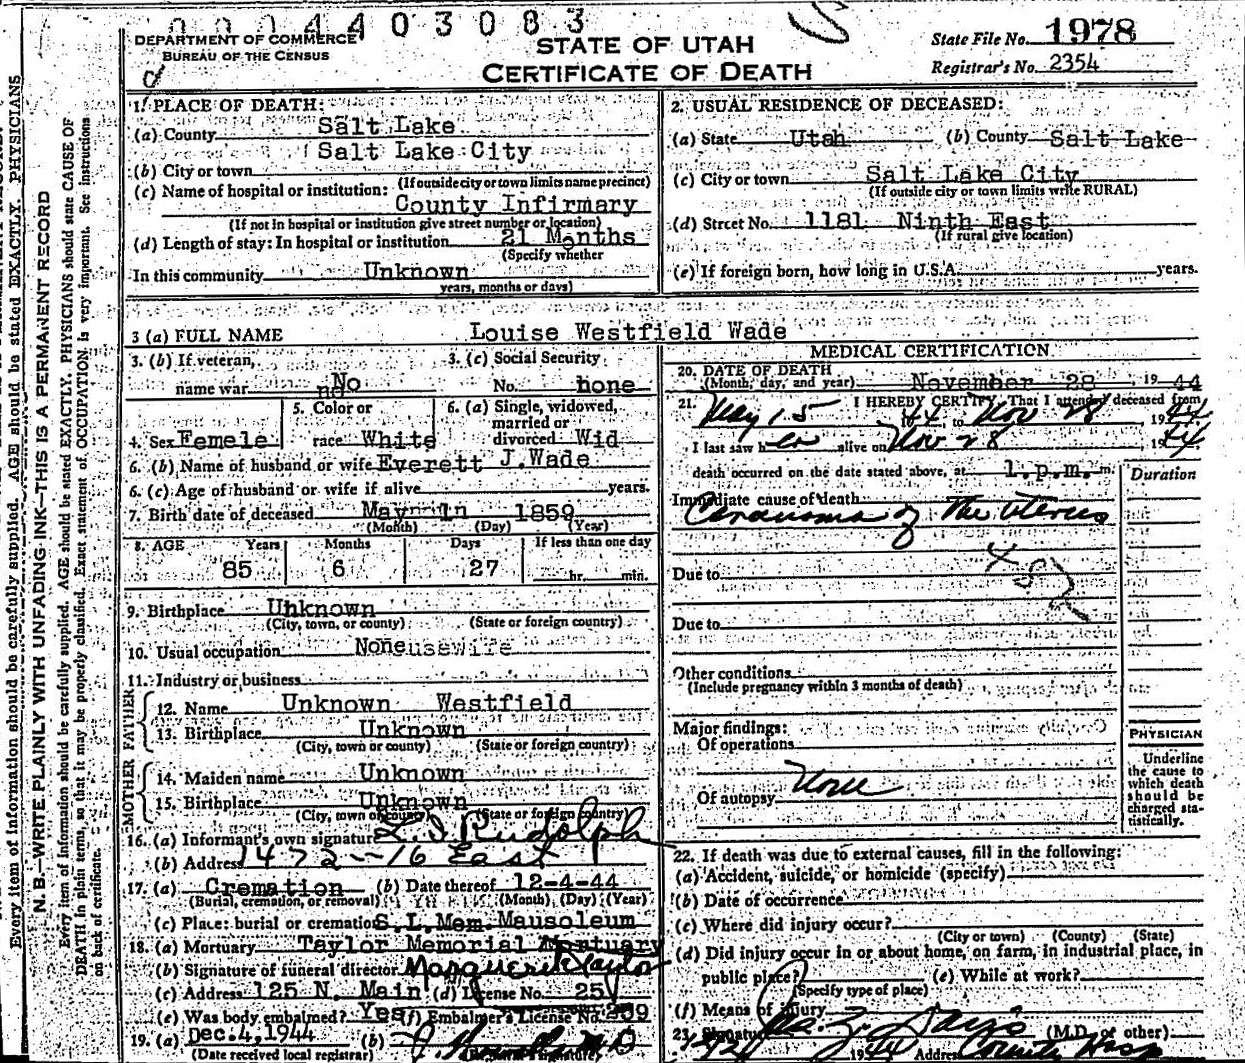 0004403083
DEPARTMENT OF COMMERCE
BUREAU OF THE CENSUS
STATE OF UTAH
CERTIFICATE OF DEATH
State File No. 1978
Registrar's No. 2354
1. PLACE OF DEATH:
(a) County Salt Lake
(b) City or town Salt Lake City
(If outside city or town limits name precinct)
(c) Name of hospital or institution:
County Infirmary
(If not in hospital or institution give street number or location)
(d) Length of stay: In hospital or institution 21 Months
(Specify whether
In this community Unknown
years, months or days)
2. USUAL RESIDENCE OF DECEASED:
(a) State Utah (b) County Salt Lake
(c) City or town Salt Lake City
(If outside city or town limits write RURAL)
(d) Street No. 1181 Ninth East
(If rural give location)
(e) If foreign born, how long in U.S.A. years.
3 (a) FULL NAME Louise Westfield Wade
3. (b) If veteran,
name war No
3. (c) Social Security
No. none
4. Sex Femele
5. Color or
race White
6. (a) Single, widowed,
married or
divorced Wid
6. (b) Name of husband or wife Everett J.Wade
6. (c) Age of husband or wife if alive years.
7. Birth date of deceased May 1859
(Month) (Day) (Year)
8. AGE Years Months Days If less than one day
85 6 27 hr. min.
9. Birthplace Unknown
(City, town, or county) (State or foreign country)
10. Usual occupation None
11. Industry or business
FATHER
12. Name Unknown Westfield
13. Birthplace Unknown
(City, town or county) (State or foreign country)
MOTHER
14. Maiden name Unknown
15. Birthplace Unknown
(City, town or county) (State or foreign country)
16. (a) Informant's own signature L. J. Rudolph
(b) Address 1472-16 East
17. (a) Cremation (b) Date thereof 12-4-44
(Burial, cremation, or removal) (Month) (Day) (Year)
(c) Place: burial or cremation S.L. Mem. Mausoleum
18. (a) Mortuary Taylor Memorial Mortuary
(b) Signature of funeral director Marguerite Taylor
(c) Address 125 N. Main (d) License No. 25
(e) Was body embalmed? Yes (f) Embalmer's License No. 259
19. (a) Dec. 4, 1944 (b)
(Date received local registrar) (Registrar's signature)
MEDICAL CERTIFICATION
20. DATE OF DEATH
(Month, day, and year) November 28, 1944
21. I HEREBY CERTIFY, That I attended deceased from
May 15 44, to Nov 28 1944
I last saw her alive on Nov 28 1944
death occurred on the date stated above, at 1.p.m. m.
Duration
Immediate cause of death
Carcinoma of the uterus
Due to
Due to
Other conditions
(Include pregnancy within 3 months of death)
Major findings:
Of operations
Of autopsy None
PHYSICIAN
Underline
the cause to
which death
should be
charged sta-
tistically.
22. If death was due to external causes, fill in the following:
(a) Accident, suicide, or homicide (specify)
(b) Date of occurrence
(c) Where did injury occur?
(City or town) (County) (State)
(d) Did injury occur in or about home, on farm, in industrial place, in
public place? (e) While at work?
(Specify type of place)
(f) Means of injury
23. Signature (M.D. or other)
1944 Address County Hosp
Every item of information should be carefully supplied. AGE should be stated EXACTLY. PHYSICIANS
N. B.—WRITE PLAINLY WITH UNFADING INK—THIS IS A PERMANENT RECORD
Every item of information should be carefully supplied. AGE should be stated EXACTLY. PHYSICIANS should state CAUSE OF
DEATH in plain terms, so that it may be properly classified. Exact statement of OCCUPATION is very important. See instructions
on back of certificate.